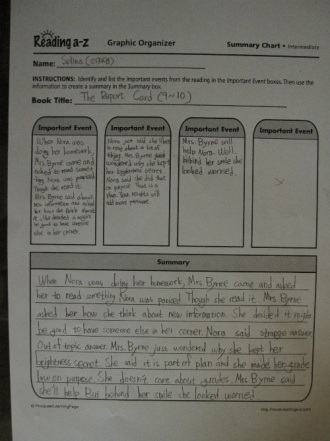 Reading a-z
Graphic Organizer
Summary Chart • Intermediate
Name: Selina
INSTRUCTIONS: Identify and list the important events from the reading in the Important Event boxes. Then use the
information to create a summary in the Summary box.
Book Title: The Report Card (9~10)
Important Event
When Nora was
doing her homework,
Mrs. Byrne came and
asked her to read something
Nora was
Though she read it.
Mrs. Byrne said about
new information and asked
her how she think about
it. She decided it might
be good to have someone
else in her corner.
Important Event
Nora just said she
Mrs. Byrne just
wondered why she kept
her
Nora said she did that
on purpose. That is a
plan.
Important Event
Mrs. Byrne will
help Nora. Well,
behind her smile she
looked worried.
Important Event
Summary
When Nora was doing her homework, Mrs. Byrne came and asked
her to read something. Nora was panicked. Though she read it. Mrs. Byrne
asked her how she think about new information. She decided it might
be good to have someone else in her corner. Nora said strange answer.
Out of topic answer. Mrs. Byrne just wondered why she kept her
brightness secret. She said it is part of plan and she made her grade
low on purpose. She doesn't care about grades. Mrs. Byrne said
she'll help. But behind her smile she looked worried.